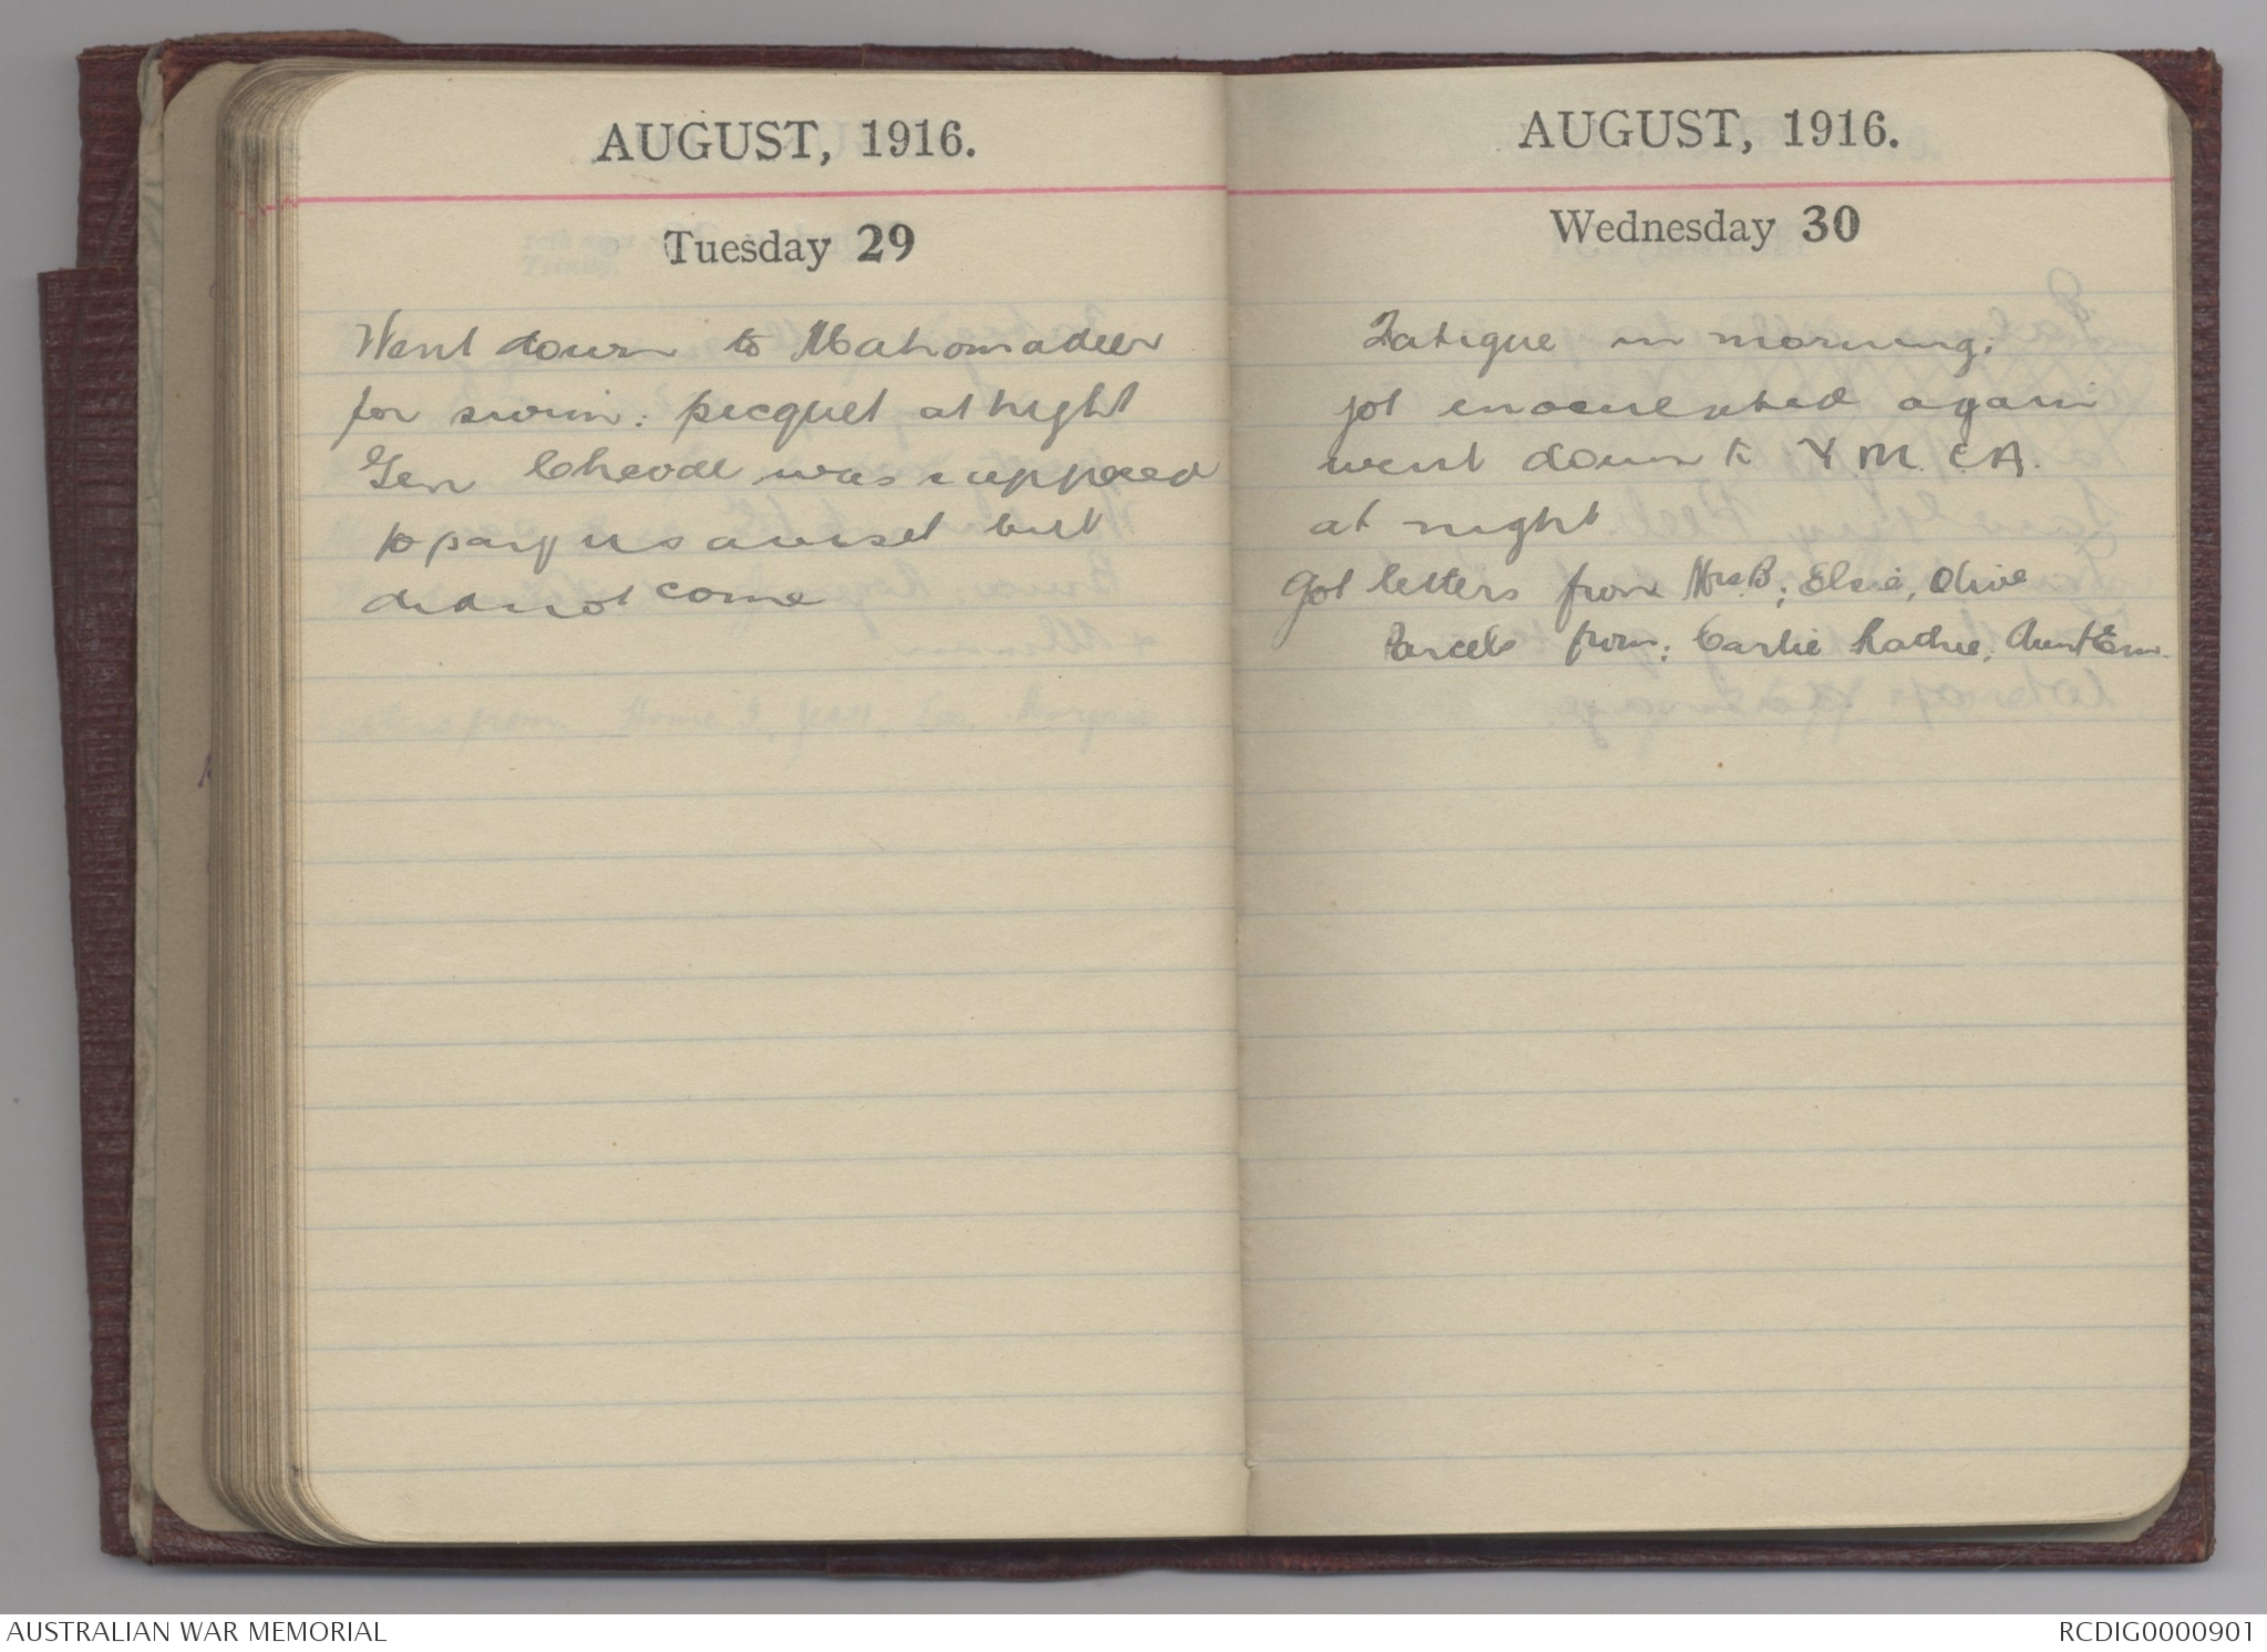 AUGUST, 1916.
Tuesday 29
Went down to Mahomadeer
for swim: picquet at night
Gen Cheavdl was supposed
to pay us a visit but
did not come
AUGUST, 1916.
Wednesday 30
Fatigue in morning;
got enoculated again
went down to Y.M.C.A.
at night
Got letters from Mrs B; Elsie, Olive
Parcels from; Carlie Aunt Em.
AUSTRALIAN WAR MEMORIAL
RCDIG0000901